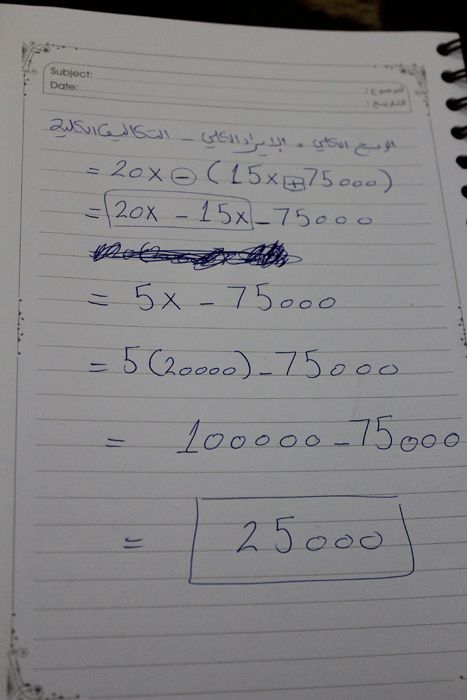 Subject:
Date:
الموضوع:
التاريخ:
الربح الكلي = الإيراد الكلي - التكاليف الكلية
= 20x - (15x + 75000)
= 20x - 15x - 75000
= 5x - 75000
= 5(20000) - 75000
= 100000 - 75000
= 25000